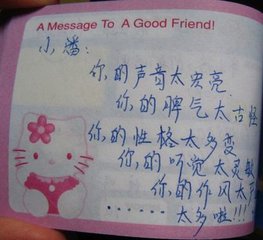 A Message To A Good Friend!
小潘:
你的声音太宏亮
你的脾气太古怪
你的性格太多变
你的听觉太灵敏
你的作风太
......太多啦!!!